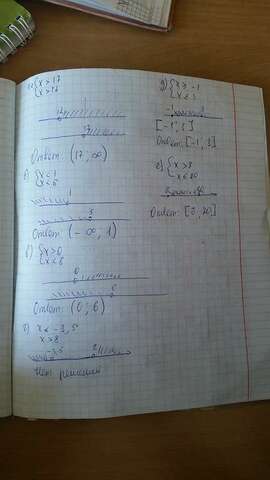 а) {x > 17
x > 13
13
17
Ответ: (17; ∞)
б) {x < 1
x < 5
1
5
Ответ: (-∞; 1)
в) {x > 0
x < 6
0
6
Ответ: (0; 6)
г) x < -3,5
x > 8
-3,5
8
Нет решения
д) {x ≥ -1
x ≤ 3
[-1; 3]
Ответ: [-1; 3]
е) {x > 8
x ≤ 20
Ответ: